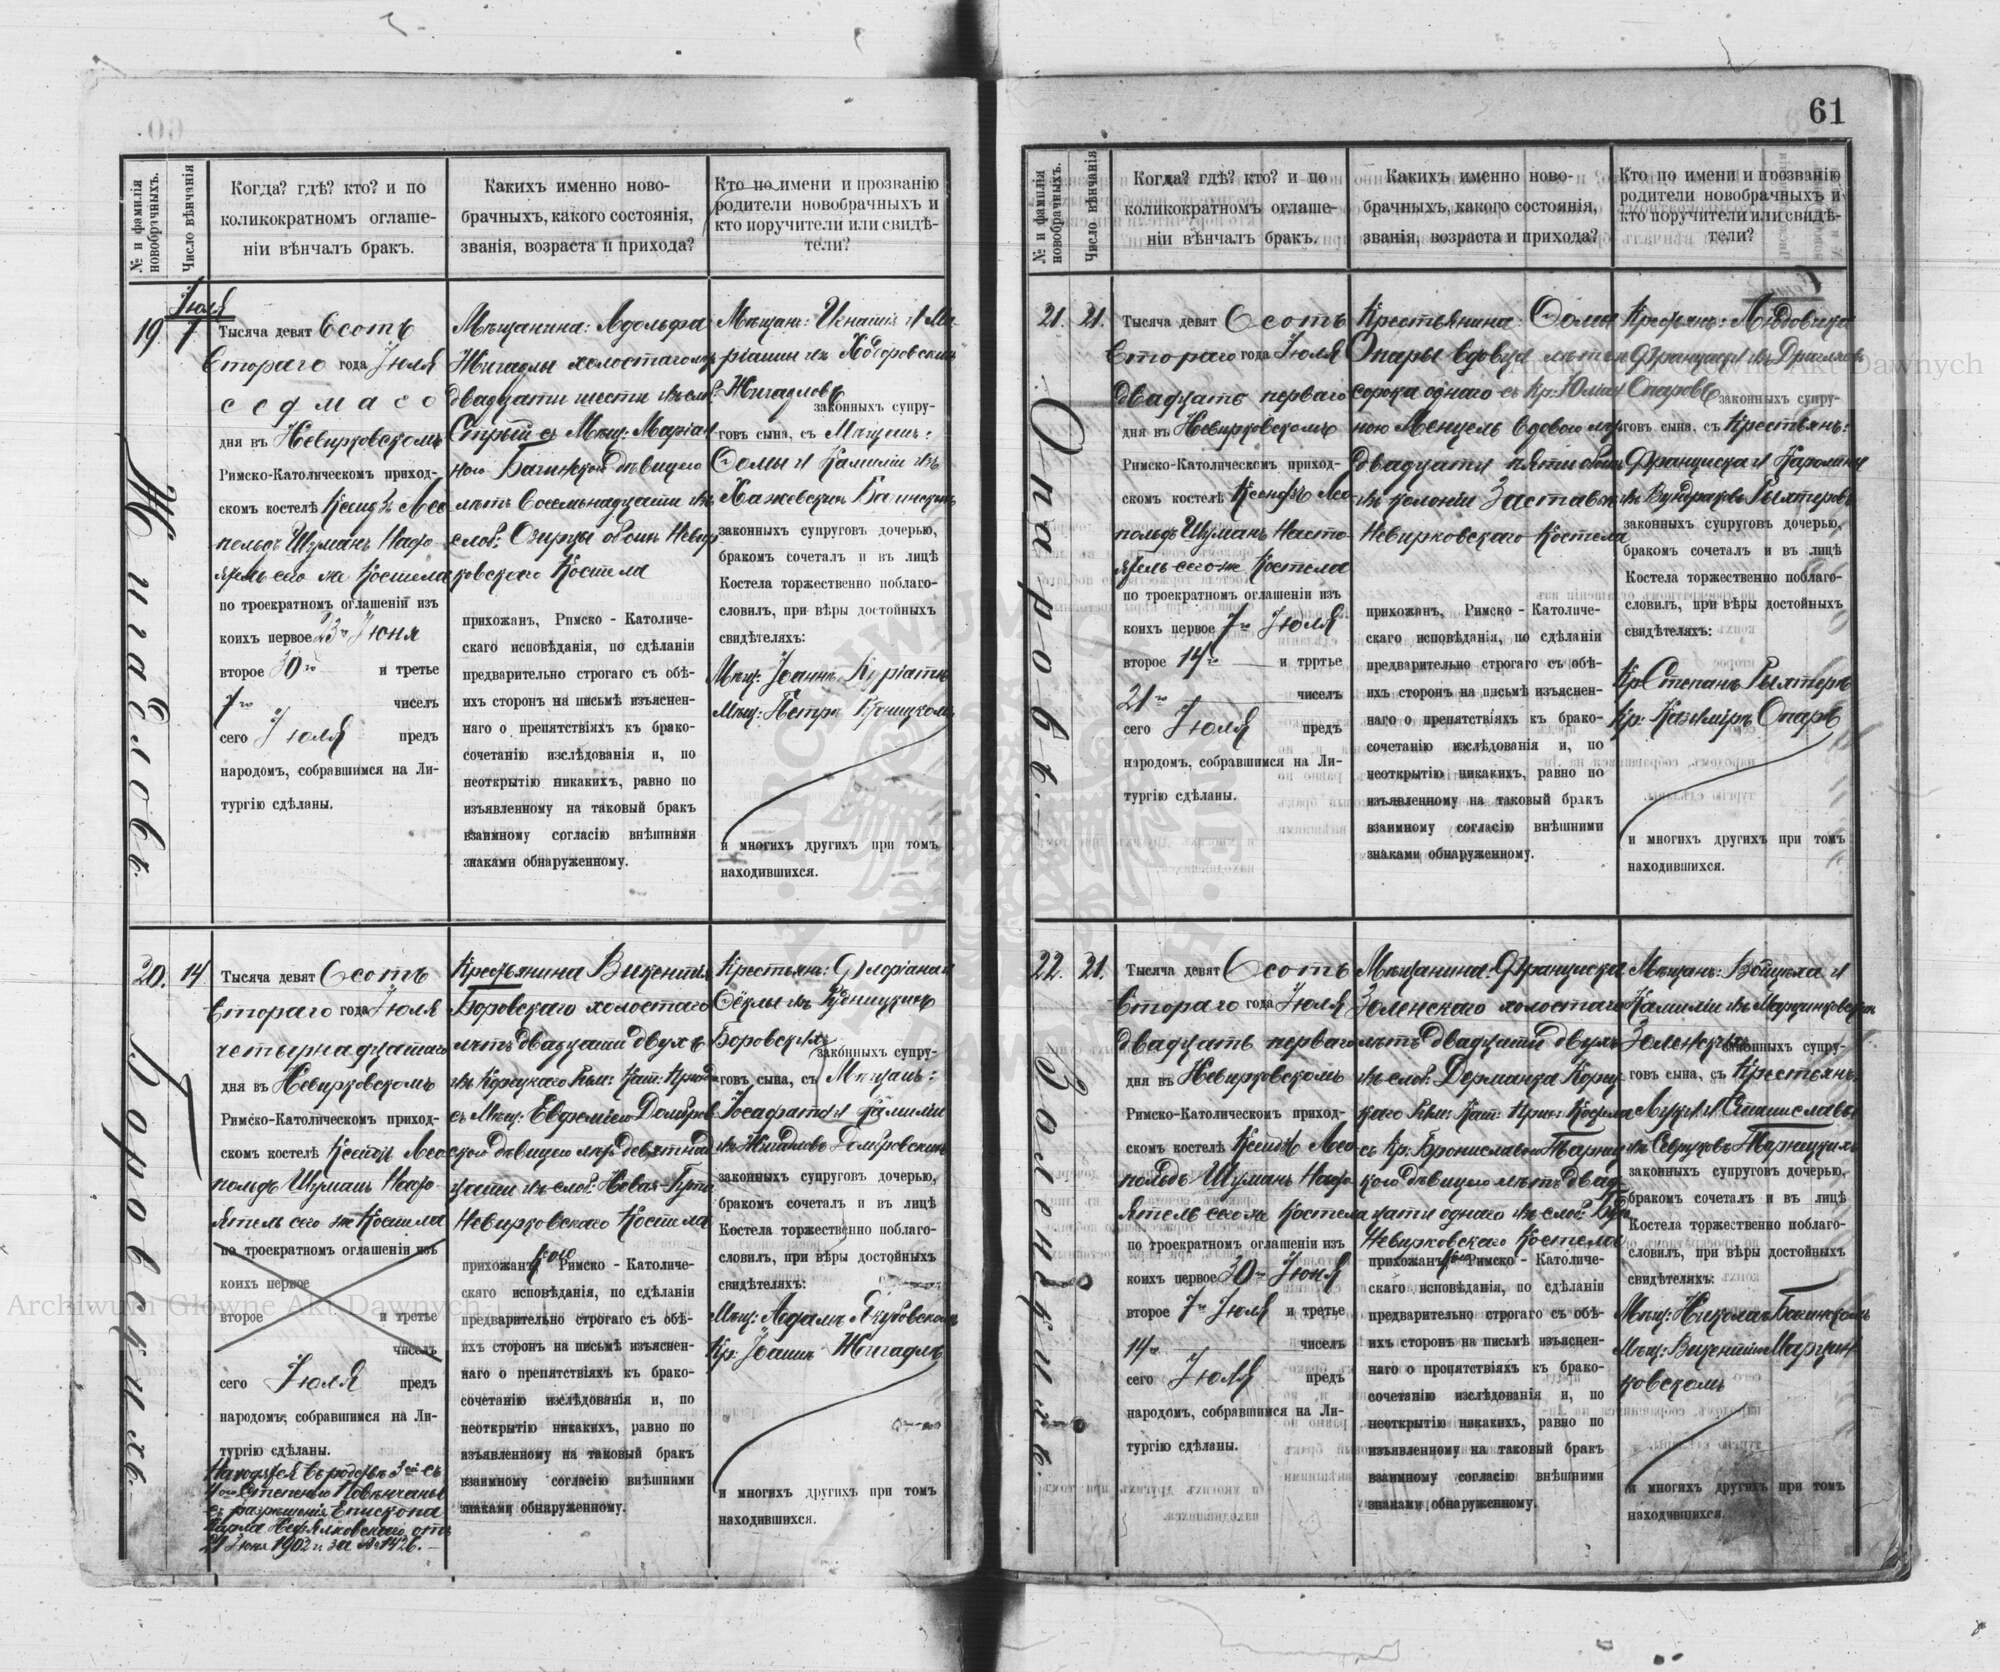 61
№ и фамилія новобрачныхъ.
Число вѣнчанія
Когда? гдѣ? кто? и по
коликократномъ оглаше-
ніи вѣнчалъ бракъ.
Какихъ именно ново-
брачныхъ, какого состоянія,
званія, возраста и прихода?
Кто по имени и прозванію
родители новобрачныхъ и
кто поручители или свидѣ-
тели?
Іюля
19. 7
Жигаловъ
Тысяча девят Ѳсотъ
Втораго года Іюля
седмаго
дня въ Невирковскомъ
Римско-Католическомъ приход-
скомъ костелѣ Ксендзъ Лео
польдъ Шуманъ Насто-
ятель сего же Костела
по троекратномъ оглашеніи изъ
коихъ первое 23го Іюня
второе 30го и третье
7го чиселъ
сего Іюля предъ
народомъ, собравшимся на Ли-
тургію сдѣланы.
Мѣщанина: Адольфа
Жигадлы холостаго
двадцати шести изъ слоб:
съ Мѣщ: Маріан
ною Багинской дѣвицею
лѣтъ восемьнадцати изъ
слоб: обоихъ Невир
ковскаго Костела
прихожан, Римско - Католиче-
скаго исповѣданія, по сдѣланіи
предварительно строгаго съ обѣ-
ихъ сторонъ на письмѣ изъяснен-
наго о препятствіяхъ къ брако-
сочетанію изслѣдованія и, по
неоткрытію никакихъ, равно по
изъявленному на таковый бракъ
взаимному согласію внѣшними
знаками обнаруженному.
Мѣщан: Игнатія и Ма-
ріанны изъ
Жигадловъ
законныхъ супру-
говъ сына, съ Мѣщан:
Ѳомы и Камиліи изъ
Багинскихъ
законныхъ супруговъ дочерью,
бракомъ сочеталъ и въ лицѣ
Костела торжественно поблаго-
словилъ, при вѣры достойныхъ
свидѣтеляхъ:
Мѣщ: Іоаннъ
Мѣщ: Петръ
и многихъ другихъ при томъ
находившихся.
20. 14
Боровскихъ
Тысяча девят Ѳсотъ
Втораго года Іюля
четырнадцатаго
дня въ Невирковскомъ
Римско-Католическомъ приход-
скомъ костелѣ Ксендзъ Лео
польдъ Шуманъ Насто-
ятель сего же Костела
по троекратномъ оглашеніи изъ
коихъ первое
второе и третье
чиселъ
сего Іюля предъ
народомъ, собравшимся на Ли-
тургію сдѣланы.
Находятся въ родствѣ 3ей съ
4ою Степенью Повѣнчаны
съ разрѣшенія Епископа
Карла Недзялковскаго отъ
21 Іюня 1902 г. за № 1426.
Крестьянина Викентія
Боровскаго холостаго
лѣтъ двадцати двухъ
изъ Корецкаго Рим: Кат: Прихода
съ Мѣщ: Евфеміею Домбров
ской дѣвицею лѣтъ девятнад
цати изъ слоб: Новая-Гута
Невирковскаго Костела
прихожан, Римско - Католиче-
скаго исповѣданія, по сдѣланіи
предварительно строгаго съ обѣ-
ихъ сторонъ на письмѣ изъяснен-
наго о препятствіяхъ къ брако-
сочетанію изслѣдованія и, по
неоткрытію никакихъ, равно по
изъявленному на таковый бракъ
взаимному согласію внѣшними
знаками обнаруженному.
Крестьянъ: Флоріана и
Ѳёклы изъ Рудницкихъ
Боровскихъ
законныхъ супру-
говъ сына, съ Мѣщан:
Іосафата и Камиліи
изъ Жигадловъ Домбровскихъ
законныхъ супруговъ дочерью,
бракомъ сочеталъ и въ лицѣ
Костела торжественно поблаго-
словилъ, при вѣры достойныхъ
свидѣтеляхъ:
Мѣщ: Адамъ Якубовскомъ
Кр: Іоаннъ Жигадлъ
и многихъ другихъ при томъ
находившихся.
№ и фамилія новобрачныхъ.
Число вѣнчанія
Когда? гдѣ? кто? и по
коликократномъ оглаше-
ніи вѣнчалъ бракъ.
Какихъ именно ново-
брачныхъ, какого состоянія,
званія, возраста и прихода?
Кто по имени и прозванію
родители новобрачныхъ и
кто поручители или свидѣ-
тели?
21. 21.
Опаровъ.
Тысяча девят Ѳсотъ
Втораго года Іюля
двадцать перваго
дня въ Невирковскомъ
Римско-Католическомъ приход-
скомъ костелѣ Ксендзъ Лео-
польдъ Шуманъ Насто-
ятель сего же Костела
по троекратномъ оглашеніи изъ
коихъ первое 7го Іюля
второе 14го и тртье
21го чиселъ
сего Іюля предъ
народомъ, собравшимся на Ли-
тургію сдѣланы.
Крестьянина: Ѳомы
Опары вдовца лѣтъ
сорока одного съ Кр: Юліан
ною Менцель вдовою лѣтъ
двадцати пяти обоихъ
изъ колоніи Заставье
Невирковскаго Костела
прихожан, Римско - Католиче-
скаго исповѣданія, по сдѣланіи
предварительно строгаго съ обѣ-
ихъ сторонъ на письмѣ изъяснен-
наго о препятствіяхъ къ брако-
сочетанію изслѣдованія и, по
неоткрытію никакихъ, равно по
изъявленному на таковый бракъ
взаимному согласію внѣшними
знаками обнаруженному.
Крестьянъ: Людовика
Опаровъ законныхъ супру-
говъ сына, съ Крестьянъ:
Франциска и Каролины
изъ Рыхтеровъ
законныхъ супруговъ дочерью,
бракомъ сочеталъ и въ лицѣ
Костела торжественно поблаго-
словилъ, при вѣры достойныхъ
свидѣтеляхъ:
Кр: Степанъ Рыхтеръ
Кр: Казиміръ Опаръ
и многихъ другихъ при томъ
находившихся.
22. 21.
Тысяча девят Ѳсотъ
Втораго года Іюля
двадцать перваго
дня въ Невирковскомъ
Римско-Католическомъ приход-
скомъ костелѣ Ксендзъ Лео
польдъ Шуманъ Насто-
ятель сего же Костела
по троекратномъ оглашеніи изъ
коихъ первое 30го Іюня
второе 7го Іюля и третье
14го чиселъ
сего Іюля предъ
народомъ, собравшимся на Ли-
тургію сдѣланы.
Мѣщанина: Франциска
Золенскаго холостаго
лѣтъ двадцати двухъ
изъ слоб: Дерманка Корец
каго Рим: Кат: Прих: Костела
съ Кр: Брониславою Тарниц
кого дѣвицею лѣтъ двад
цати одного изъ слоб:
Невирковскаго Костела
прихожан, Римско - Католиче-
скаго исповѣданія, по сдѣланіи
предварительно строгаго съ обѣ-
ихъ сторонъ на письмѣ изъяснен-
наго о препятствіяхъ къ брако-
сочетанію изслѣдованія и, по
неоткрытію никакихъ, равно по
изъявленному на таковый бракъ
взаимному согласію внѣшними
знаками обнаруженному.
Мѣщан: Войцѣха и
Камиліи изъ Марцинковскихъ
Золенскихъ законныхъ супру-
говъ сына, съ Крестьянъ:
Луки и Станиславы
изъ Тарницкихъ
законныхъ супруговъ дочерью,
бракомъ сочеталъ и въ лицѣ
Костела торжественно поблаго-
словилъ, при вѣры достойныхъ
свидѣтеляхъ:
Мѣщ: Николай Багинскомъ
Мѣщ: Викентій Марцин
ковскомъ
и многихъ другихъ при томъ
находившихся.
Archiwum Główne Akt Dawnych
Archiwum Główne Akt Dawnych